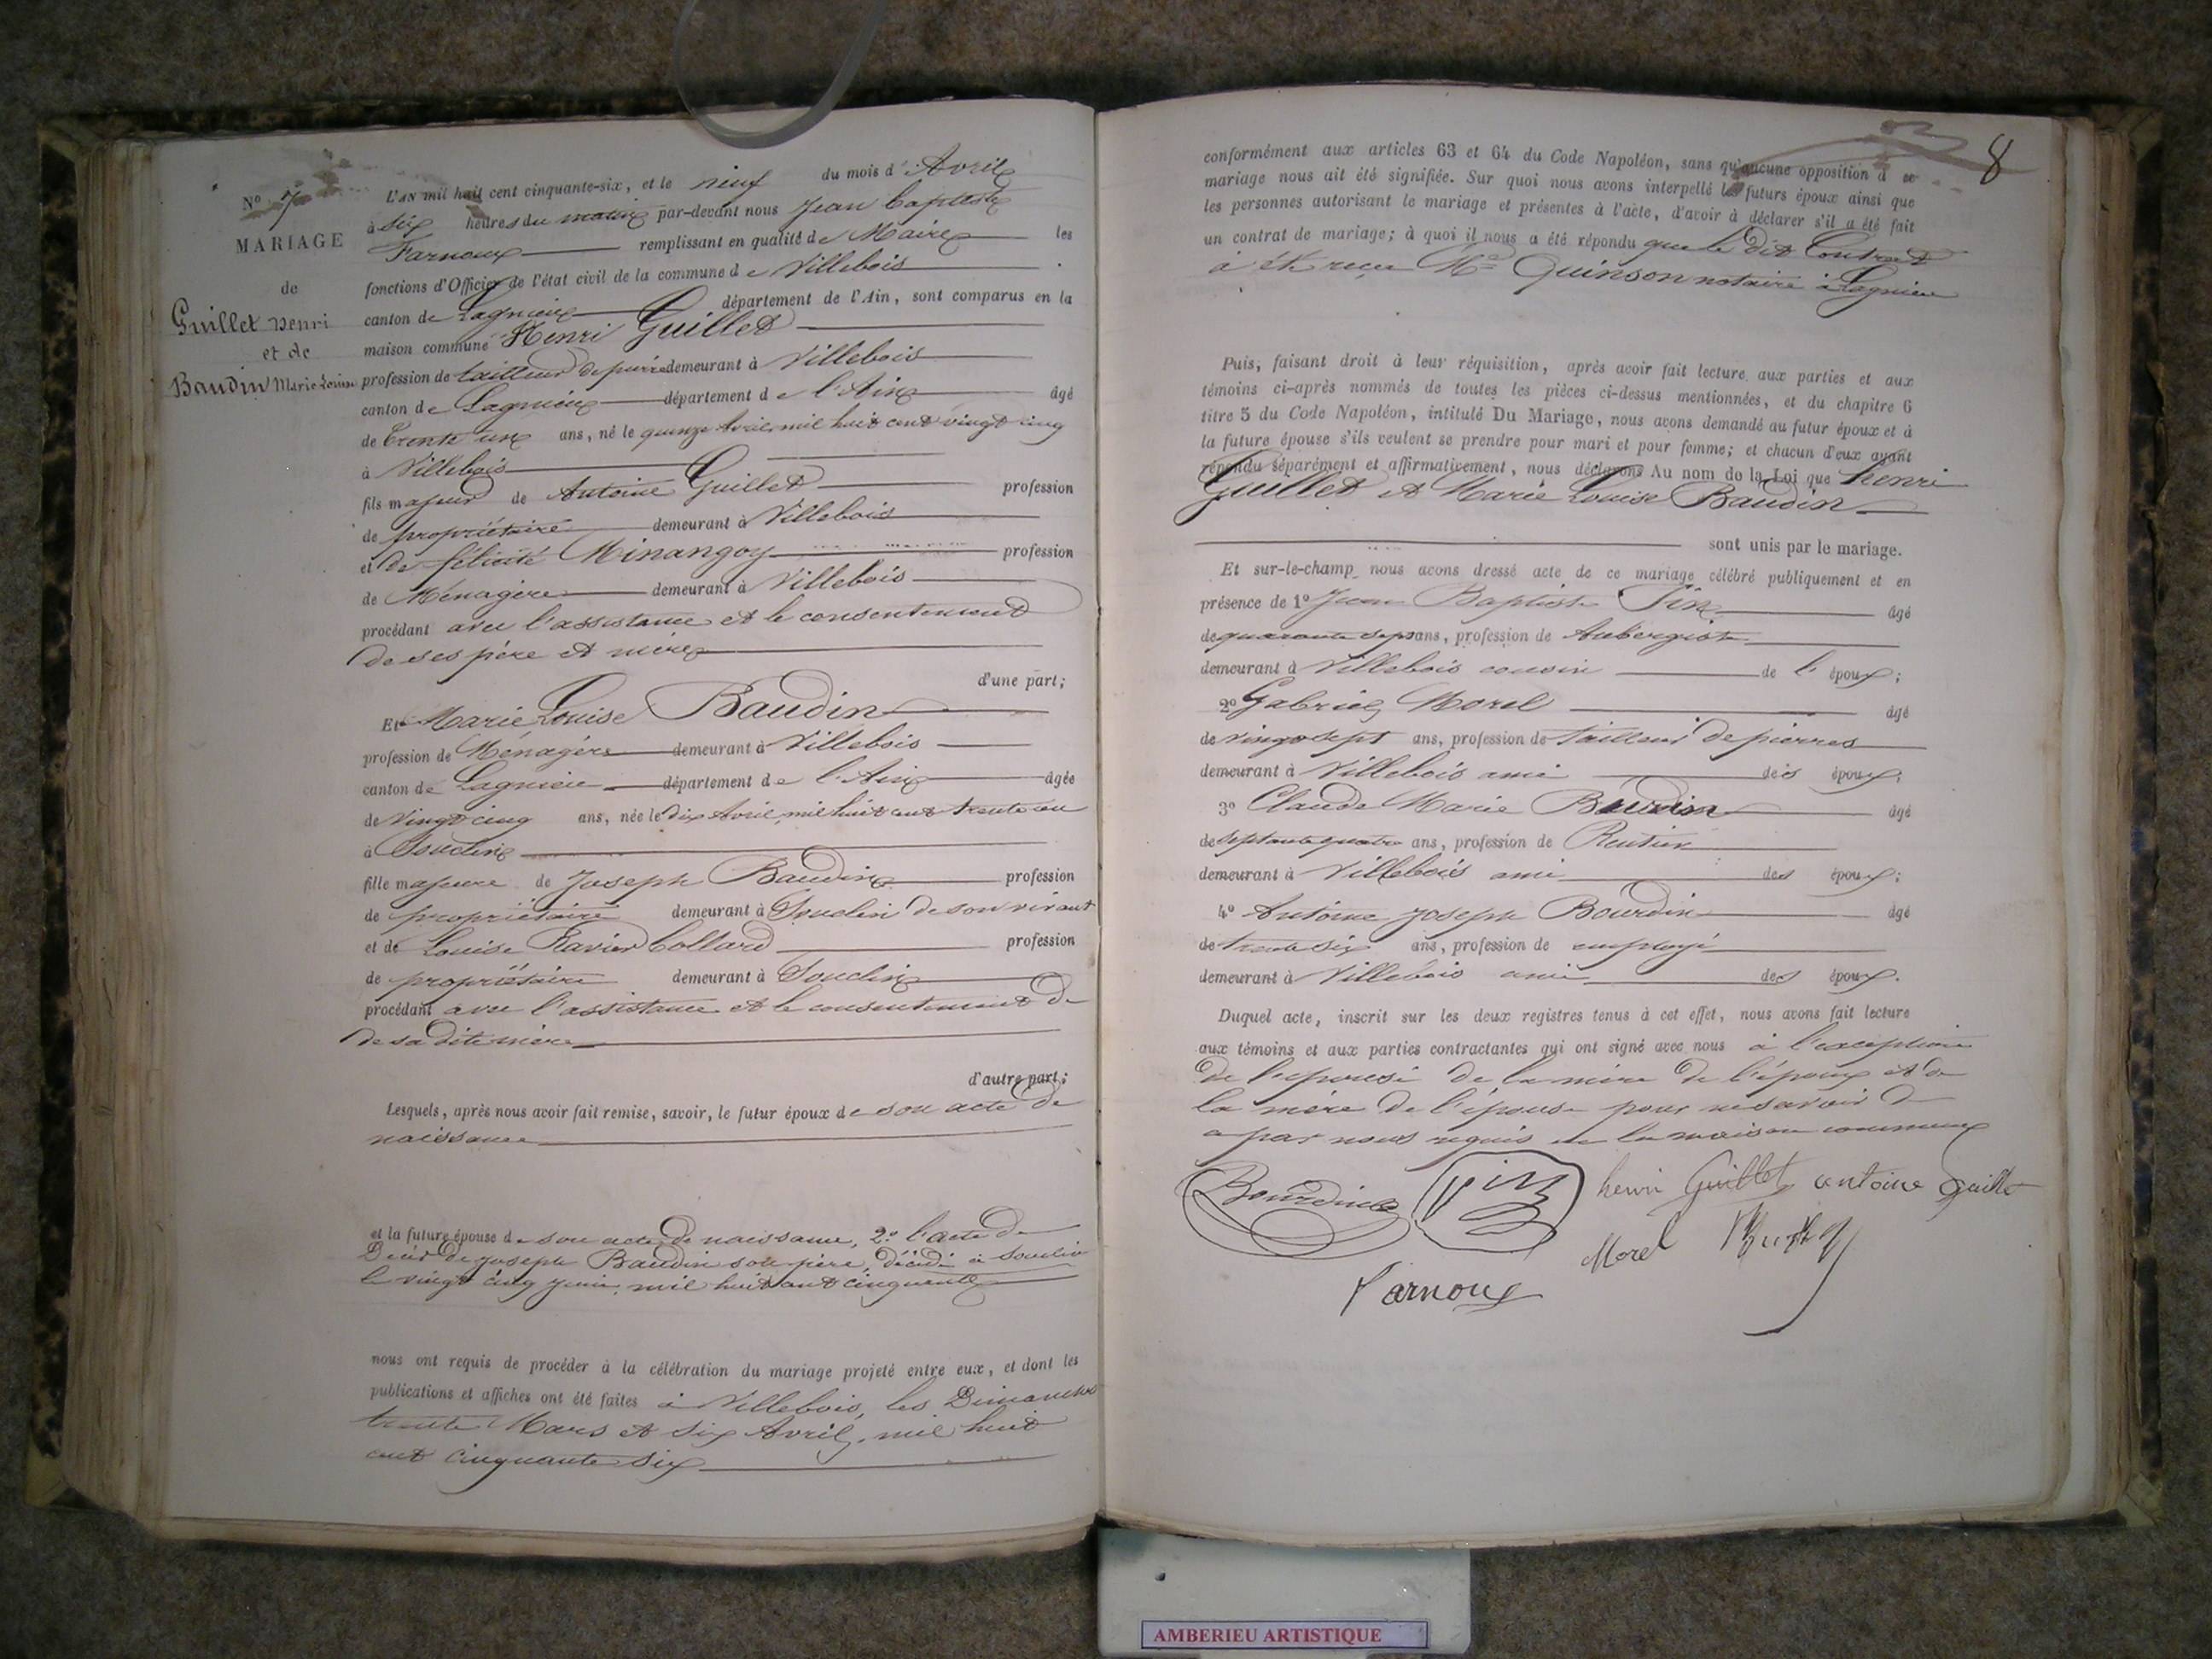 N° 7
MARIAGE
de
Guillet Henri
et de
Baudin Marie Louise
L'AN mil huit cent cinquante-six, et le neuf du mois d'Avril
à six heures du matin par-devant nous Jean Baptiste
Farnoux remplissant en qualité de Maire les
fonctions d'Officier de l'état civil de la commune de Villebois
canton de Lagnieu département de l'Ain, sont comparus en la
maison commune Henri Guillet
profession de tailleur de pierre demeurant à Villebois
canton de Lagnieu département de l'Ain âgé
de Trente un ans, né le quinze Avril mil huit cent vingt cinq
à Villebois
fils majeur de Antoine Guillet profession
de propriétaire demeurant à Villebois
et de félicité Minangoy profession
de Ménagère demeurant à Villebois
procédant avec l'assistance et le consentement
de ses père et mère
d'une part;
Et Marie Louise Baudin
profession de Ménagère demeurant à Villebois
canton de Lagnieu département de l'Ain âgée
de Vingt cinq ans, née le dix Avril mil huit cent trente un
à Souclin
fille majeure de Joseph Baudin profession
de propriétaire demeurant à Souclin de son vivant
et de Louise Ravier Collard profession
de propriétaire demeurant à Souclin
procédant avec l'assistance et le consentement de
de sa dite mère
d'autre part;
Lesquels, après nous avoir fait remise, savoir, le futur époux de son acte de
naissance
et la future épouse de son acte de naissance, 2° l'acte de
Décès de Joseph Baudin son père, décédé à Souclin
le vingt cinq juin mil huit cent cinquante
nous ont requis de procéder à la célébration du mariage projeté entre eux, et dont les
publications et affiches ont été faites à Villebois, les Dimanches
trente Mars et six Avril, mil huit
cent cinquante six
8
conformément aux articles 63 et 64 du Code Napoléon, sans qu'aucune opposition à ce
mariage nous ait été signifiée. Sur quoi nous avons interpellé les futurs époux ainsi que
les personnes autorisant le mariage et présentes à l'acte, d'avoir à déclarer s'il a été fait
un contrat de mariage; à quoi il nous a été répondu que le dit Contrat
à été reçu Me Quinson notaire à Lagnieu
Puis, faisant droit à leur réquisition, après avoir fait lecture aux parties et aux
témoins ci-après nommés de toutes les pièces ci-dessus mentionnées, et du chapitre 6
titre 5 du Code Napoléon, intitulé Du Mariage, nous avons demandé au futur époux et à
la future épouse s'ils veulent se prendre pour mari et pour femme; et chacun d'eux ayant
répondu séparément et affirmativement, nous déclarons Au nom de la Loi que henri
Guillet et Marie Louise Baudin
sont unis par le mariage.
Et sur-le-champ nous avons dressé acte de ce mariage célébré publiquement et en
présence de 1° Jean Baptiste Pin âgé
de quarante sept ans, profession de Aubergiste
demeurant à Villebois cousin de l' époux;
2° Gabriel Morel âgé
de vingt sept ans, profession de tailleur de pierres
demeurant à Villebois ami des époux;
3° Claude Marie âgé
de septante quatre ans, profession de Rentier
demeurant à Villebois ami des époux;
4° Antoine Joseph Bourdin âgé
de trente six ans, profession de employé
demeurant à Villebois ami des époux.
Duquel acte, inscrit sur les deux registres tenus à cet effet, nous avons fait lecture
aux témoins et aux parties contractantes qui ont signé avec nous à l'exception
de l'épouse de la mère de l'époux et de
la mère de l'épouse pour ne savoir de
ce par nous requis en la maison commune
Bourdin Pin henri Guillet antoine Guillet
Morel
Farnoux
AMBERIEU ARTISTIQUE